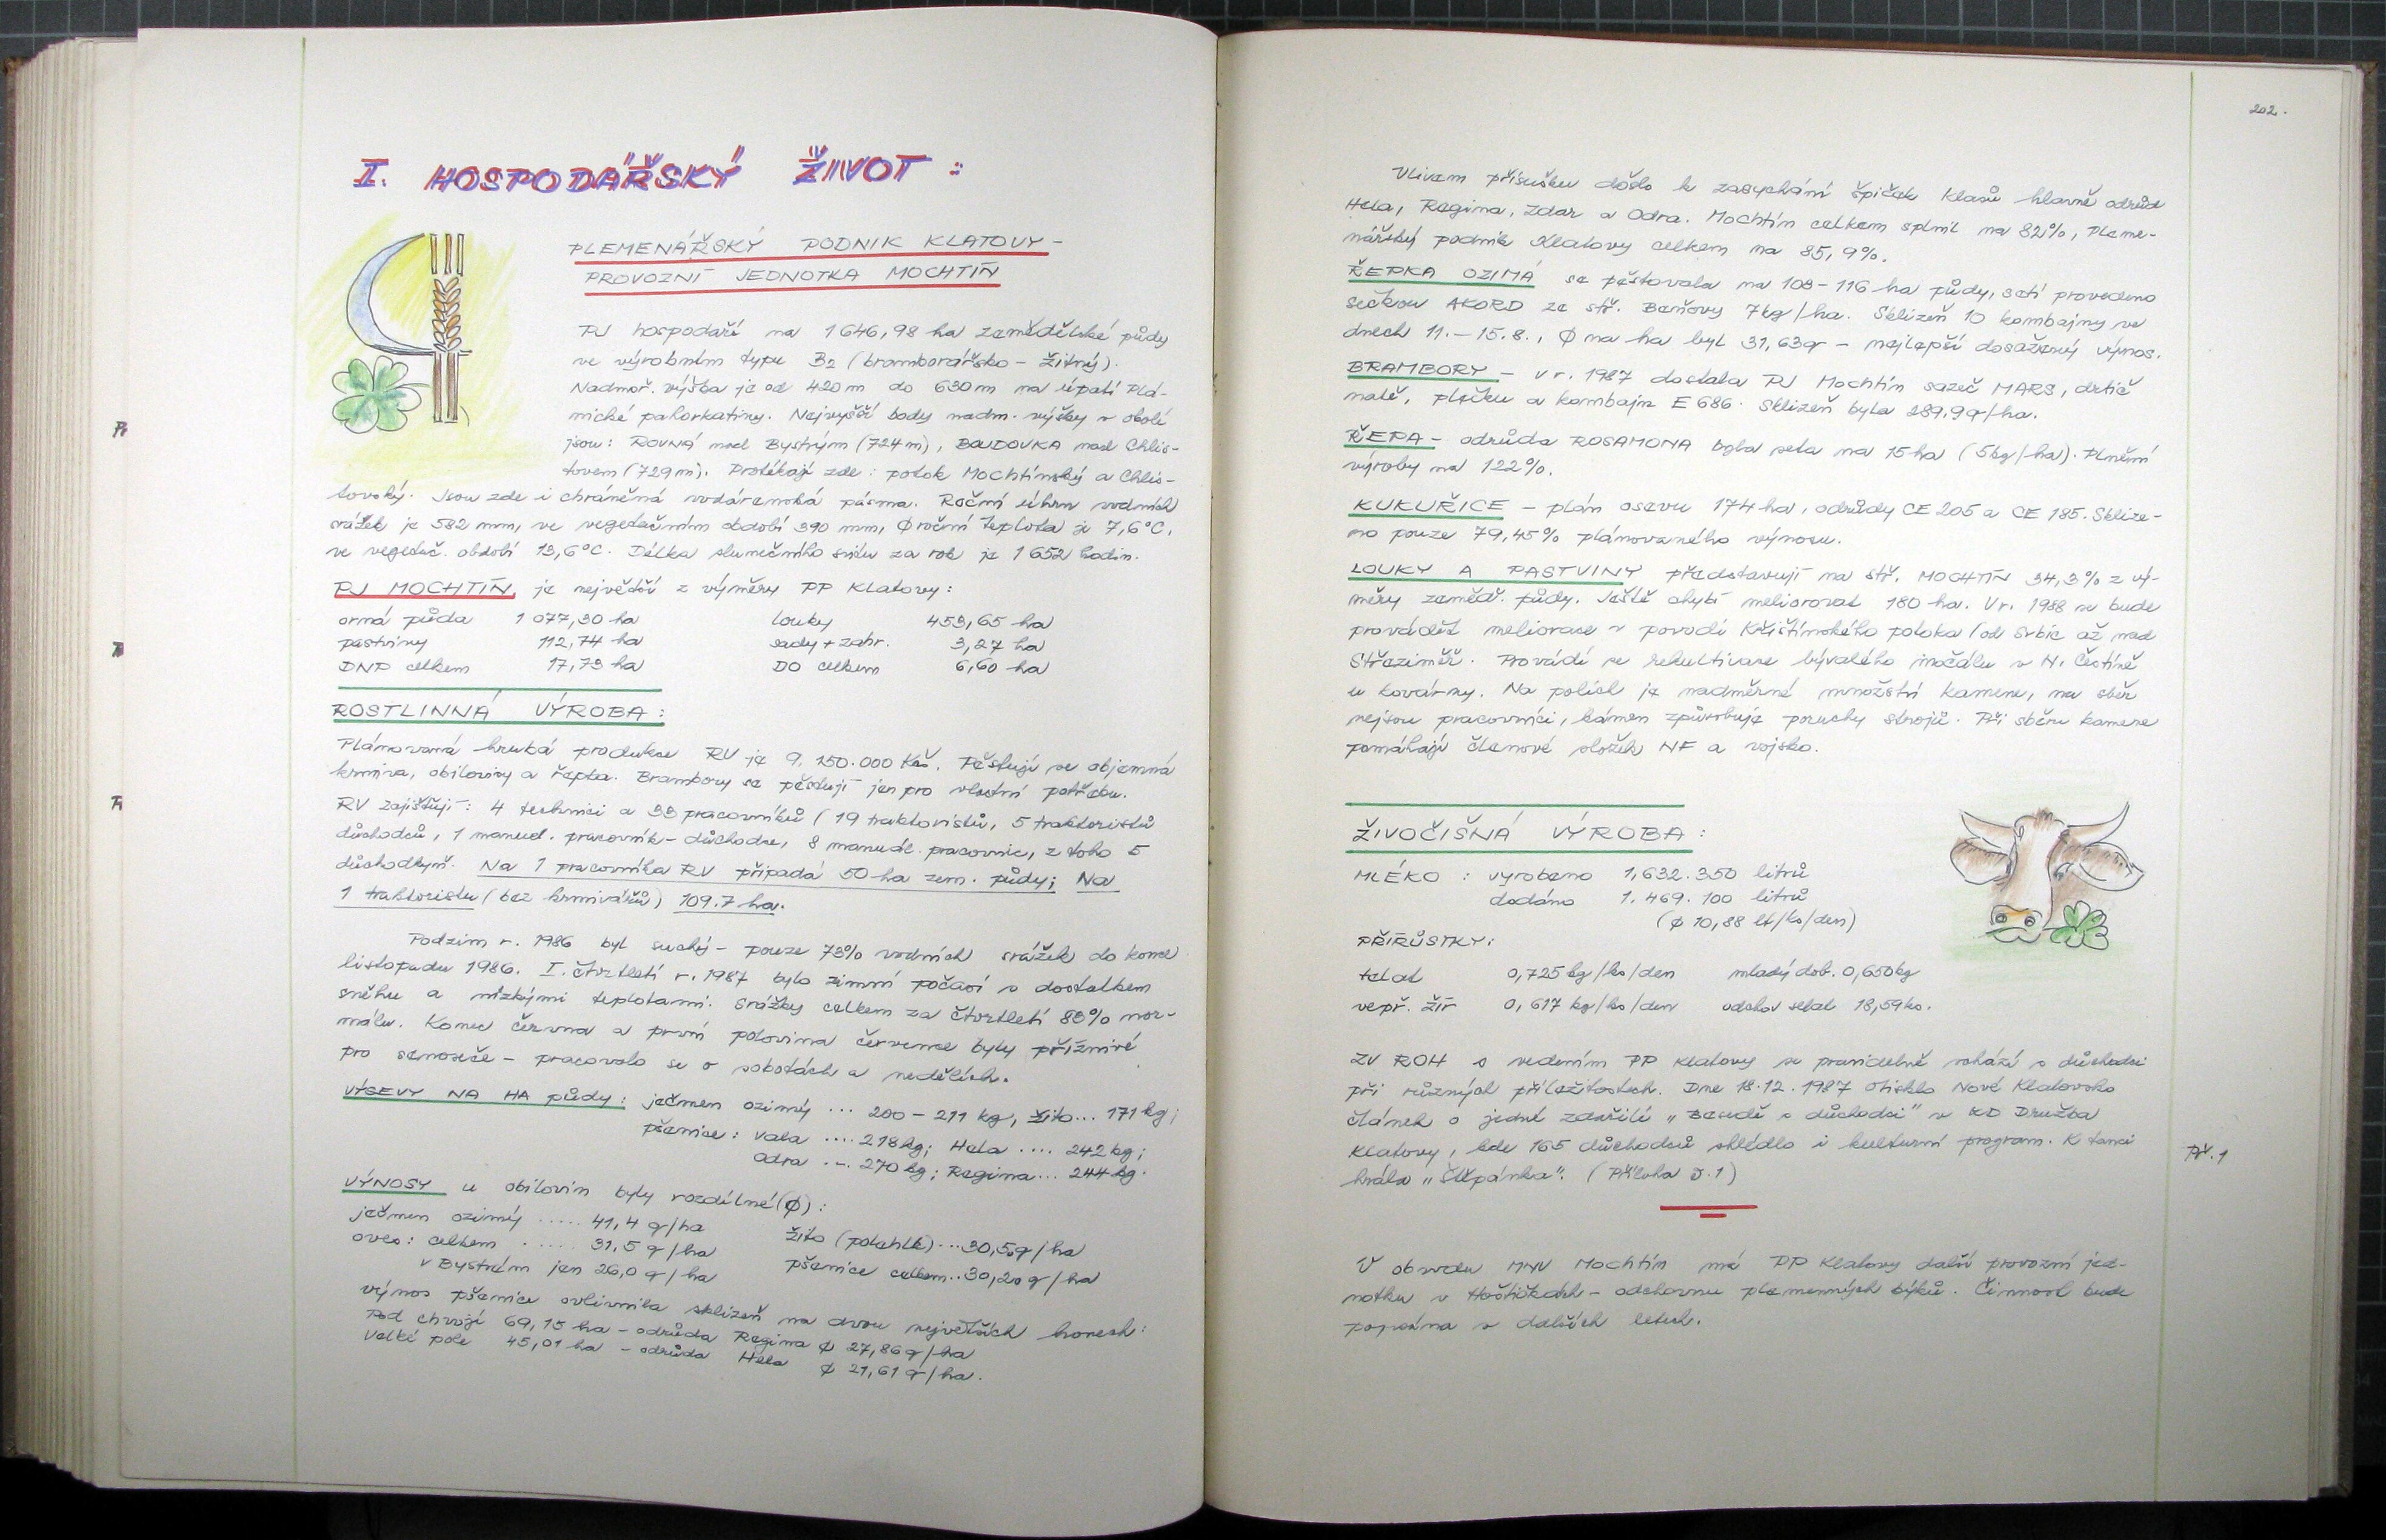 I. HOSPODÁŘSKÝ ŽIVOT :
PLEMENÁŘSKÝ PODNIK KLATOVY -
PROVOZNÍ JEDNOTKA MOCHTÍN
PJ hospodaří na 1 646,98 ha zemědělské půdy
ve výrobním typu B2 (bramborářsko - žitný).
Nadmoř. výška je od 420 m do 630 m na úpatí Plá-
nické pahorkatiny. Nejvyšší body nadm. výšky v okolí
jsou: ROVNÁ nad Bystrým (724 m), BOUDOVKA nad Chlis-
tovem (729 m). Protékají zde : potok Mochtínský a Chlis-
tovský. Jsou zde i chráněná vodárenská pásma. Roční úhrn vodních
srážek je 582 mm, ve vegetačním období 390 mm, Ø roční teplota je 7,6°C,
ve vegetač. období 13,6°C. Délka slunečního svitu za rok je 1 652 hodin.
PJ MOCHTÍN, je největší z výměry PP Klatovy :
orná půda 1 077,30 ha louky 459,65 ha
pastviny 112,74 ha sady + zahr. 3,27 ha
DNP celkem 17,79 ha DO celkem 6,60 ha
ROSTLINNÁ VÝROBA :
Plánovaná hrubá produkce RV je 9.150.000 Kčs. Pěstují se objemná
krmiva, obiloviny a řepka. Brambory se pěstují jen pro vlastní potřebu.
RV zajišťují : 4 technici a 33 pracovníků (19 traktoristů, 5 traktoristů
důchodců, 1 manuel. pracovník - důchodce, 8 manuál. pracovnic, z toho 5
důchodkyň. Na 1 pracovníka RV připadá 50 ha zem. půdy; Na
1 traktoristu (bez krmivářů) 109.7 ha.
Podzim r. 1986 byl suchý - pouze 73% vodních srážek do konce
listopadu 1986. I. čtvrtletí r. 1987 bylo zimní počasí s dostatkem
sněhu a nízkými teplotami. Srážky celkem za čtvrtletí 83% nor-
málu. Konec června a první polovina července byly příznivé
pro senoseče - pracovalo se o sobotách a nedělích.
VÝSEVY NA HA půdy : ječmen ozimý ... 200 - 211 kg, žito... 171 kg;
pšenice : Vala .... 218 kg; Hela .... 242 kg;
Odra ... 270 kg; Regina ... 244 kg.
VÝNOSY u obilovin byly rozdílné (Ø) :
ječmen ozimý ..... 41,4 q/ha žito (potahlé) ... 30,5 q/ha
oves : celkem ..... 31,5 q/ha pšenice celkem .. 30,20 q/ha
v Bystrém jen 26,0 q/ha
výnos pšenice ovlivnila sklizeň na dvou největších honech :
Pod chvojí 69,15 ha - odrůda Regina Ø 27,86 q/ha
Velké pole 45,01 ha - odrůda Hela Ø 21,61 q/ha.
202.
Vlivem přísušku došlo k zasychání špiček klasů hlavně odrůd
Hela, Regina, Zdar a Odra. Mochtín celkem splnil na 82%, Pleme-
nářský podnik Klatovy celkem na 85,9%.
ŘEPKA OZIMÁ se pěstovala na 109 - 116 ha půdy, setí provedeno
sečkou AKORD ze stř. Beňovy 7 kg/ha. Sklizeň 10 kombajny ve
dnech 11. - 15.8., Ø na ha byl 31,63 q - nejlepší dosažený výnos.
BRAMBORY - v r. 1987 dostala PJ Mochtín sazeč MARS, drtič
natě, plečku a kombajn E 686. Sklizeň byla 289,9 q/ha.
ŘEPA - odrůda ROSAMONA byla seta na 15 ha (5 kg/ha). Plnění
výroby na 122%.
KUKUŘICE - plán osevu 174 ha, odrůdy CE 205 a CE 185. Sklize-
no pouze 79,45% plánovaného výnosu.
LOUKY A PASTVINY představují na stř. MOCHTÍN 34,3% z vý-
měry zeměd. půdy. Ještě chybí meliorovat 180 ha. V r. 1988 se bude
provádět meliorace v povodí Křištínského potoka (od Srbic až nad
Střeziměř. Provádí se rekultivace bývalého močálu v N. Čestíně
u kovárny. Na polích je nadměrné množství kamene, na sběr
nejsou pracovníci, kámen způsobuje poruchy strojů. Při sběru kamene
pomáhají členové složek NF a vojsko.
ŽIVOČIŠNÁ VÝROBA :
MLÉKO : vyrobeno 1,632.350 litrů
dodáno 1.469.100 litrů
(Ø 10,88 lt/ks/den)
PŘÍRŮSTKY :
telat 0,725 kg/ks/den mladý dob. 0,650 kg
vepř. žír 0,617 kg/ks/den odchov selat 18,59 ks.
ZV ROH s vedením PP Klatovy se pravidelně schází s důchodci
při různých příležitostech. Dne 18.12.1987 otisklo Nové Klatovsko
článek o jedné zdařilé „Besedě s důchodci" v KD Družba
Klatovy, kde 165 důchodců shlédlo i kulturní program. K tanci
hrála „Štěpánka". (Příloha č.1)
Př. 1
V obvodu MNV Mochtín má PP Klatovy další provozní jed-
notku v Hoštičkách - odchovnu plemenných býků. Činnost bude
popsána v dalších letech.